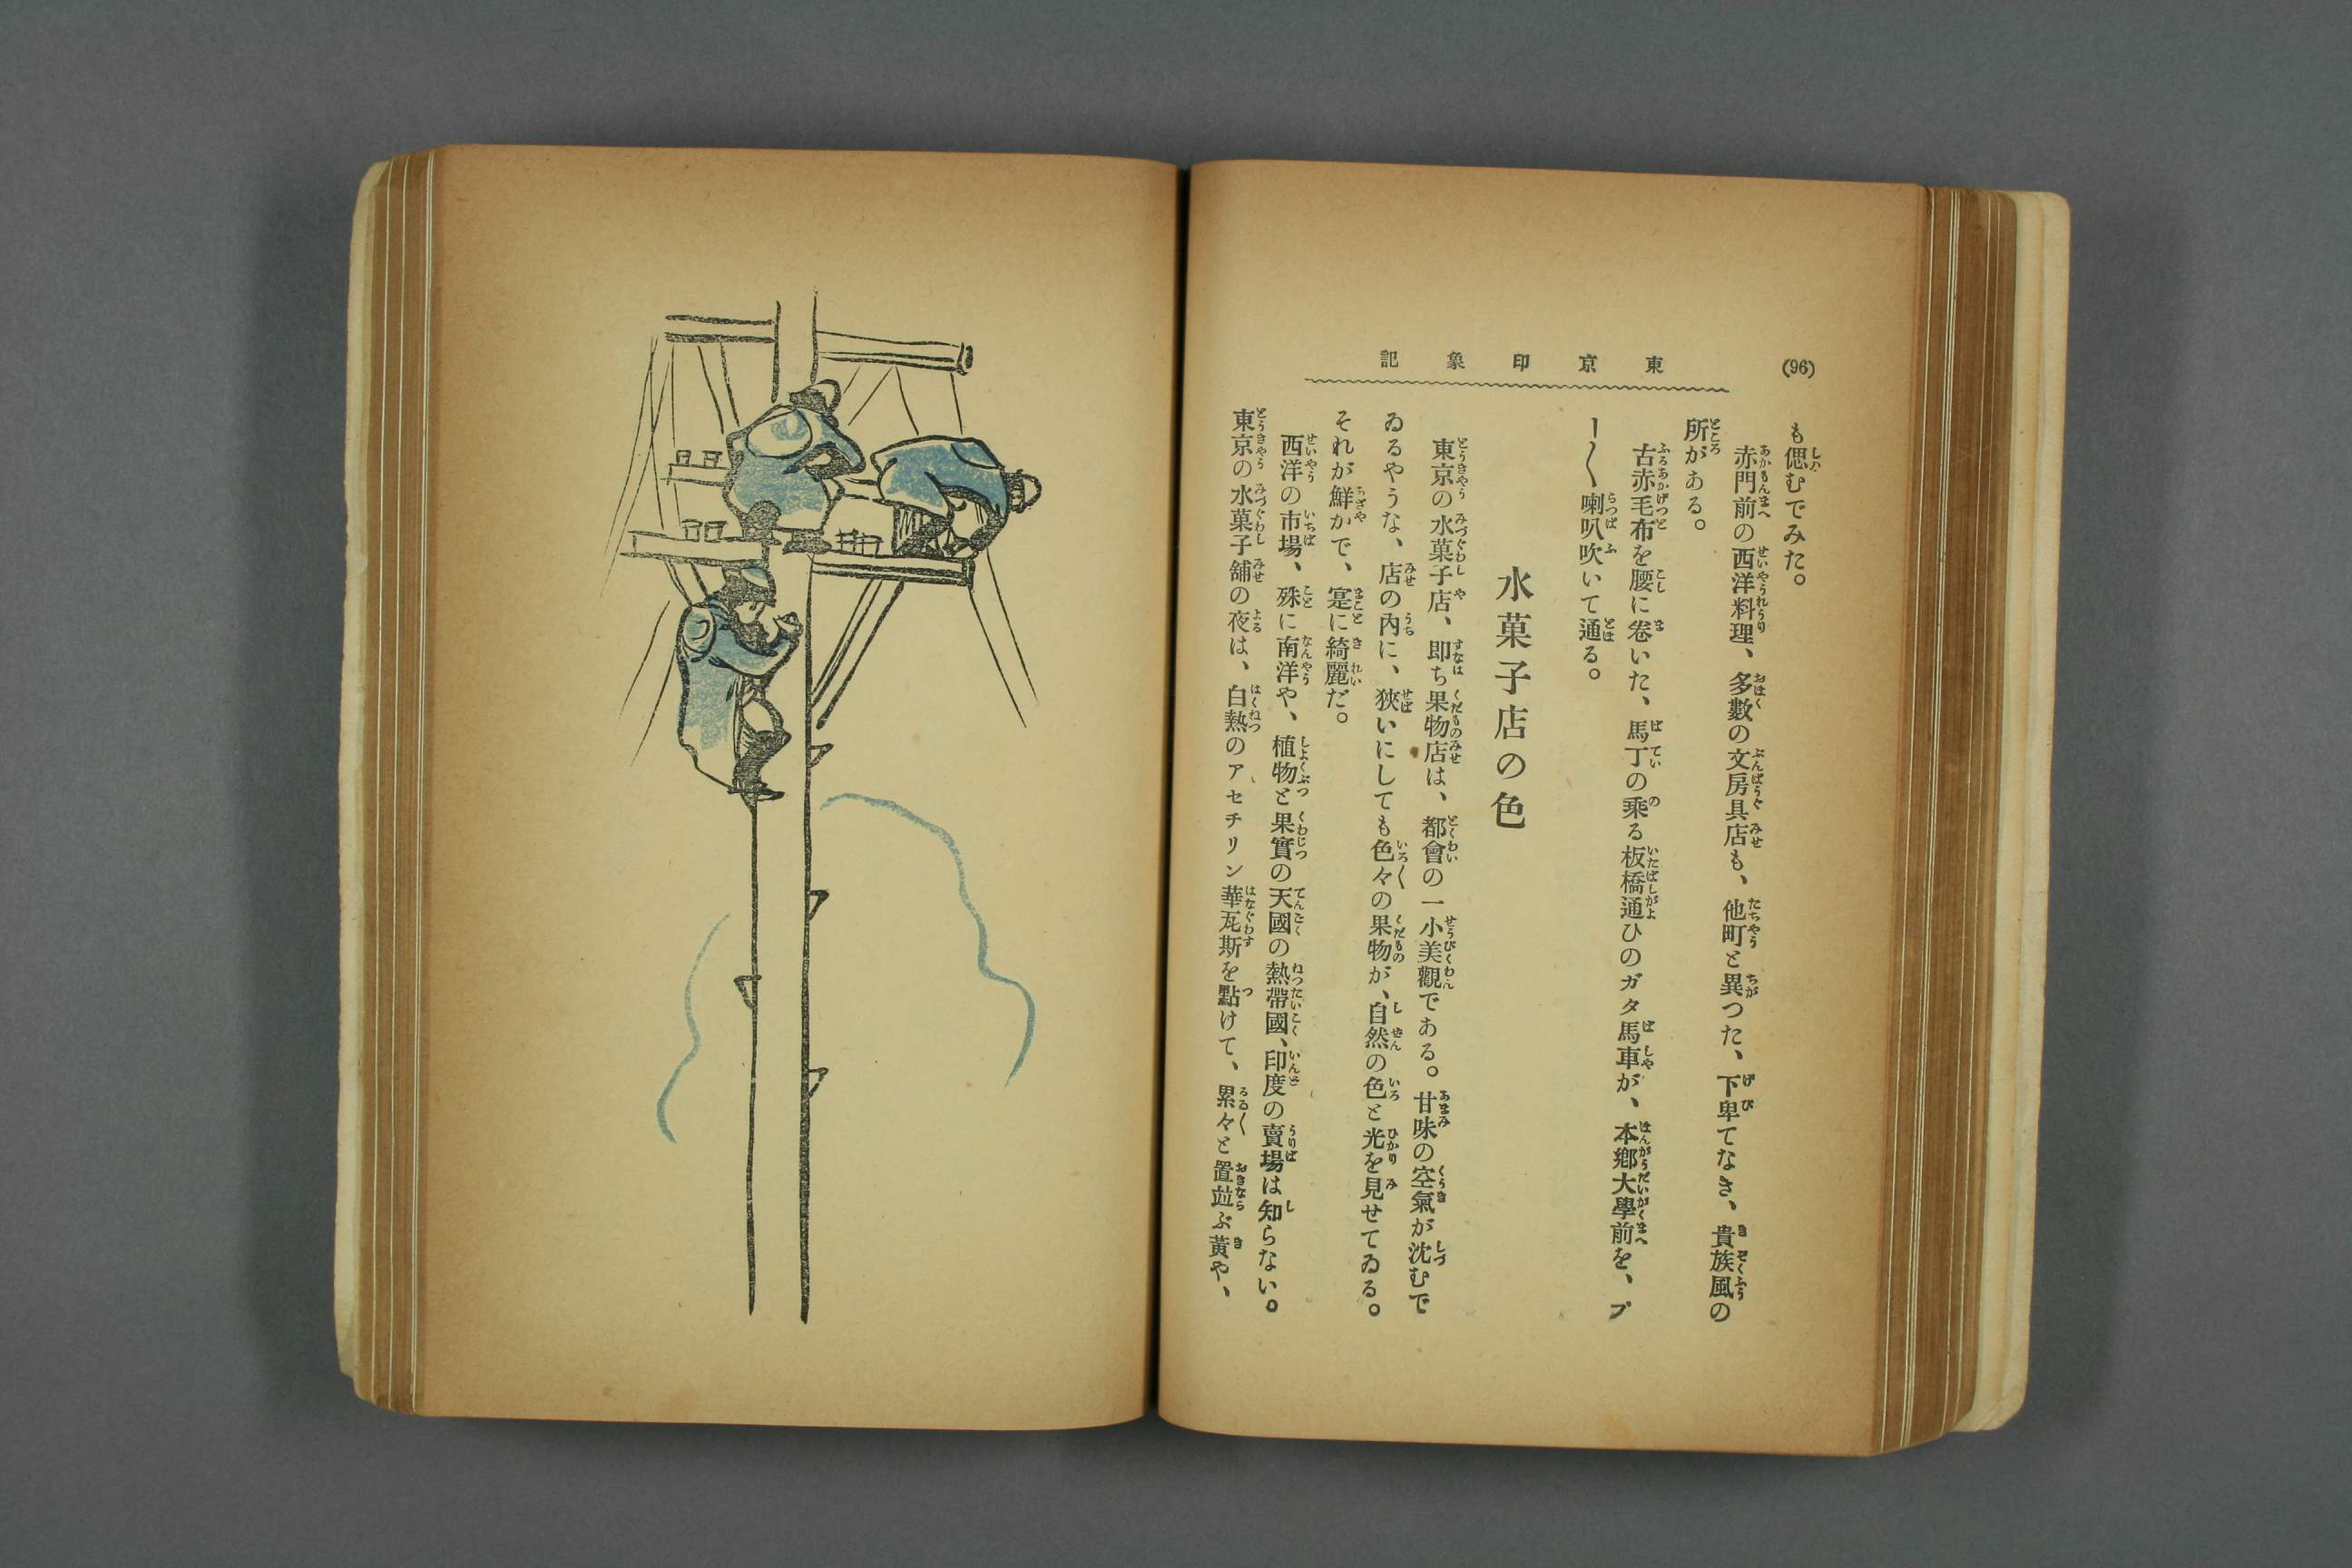 (96)
東京印象記
も偲むでみた。
赤門前の西洋料理、多數の文房具店も、他町と異つた、下卑てなき、貴族風の
所がある。
古赤毛布を腰に卷いた、馬丁の乘る板橋通ひのガタ馬車が、本鄕大學前を、プ
ー〱喇叭吹いて通る。
水菓子店の色
東京の水菓子店、即ち果物店は、都會の一小美觀である。甘味の空氣が沈むで
ゐるやうな、店の內に、狹いにしても色々の果物が、自然の色と光を見せてゐる。
それが鮮かで、寔に綺麗だ。
西洋の市場、殊に南洋や、植物と果實の天國の熱帶國、印度の賣場は知らない。
東京の水菓子舖の夜は、白熱のアセチリン華瓦斯を點けて、累々と置竝ぶ黃や、